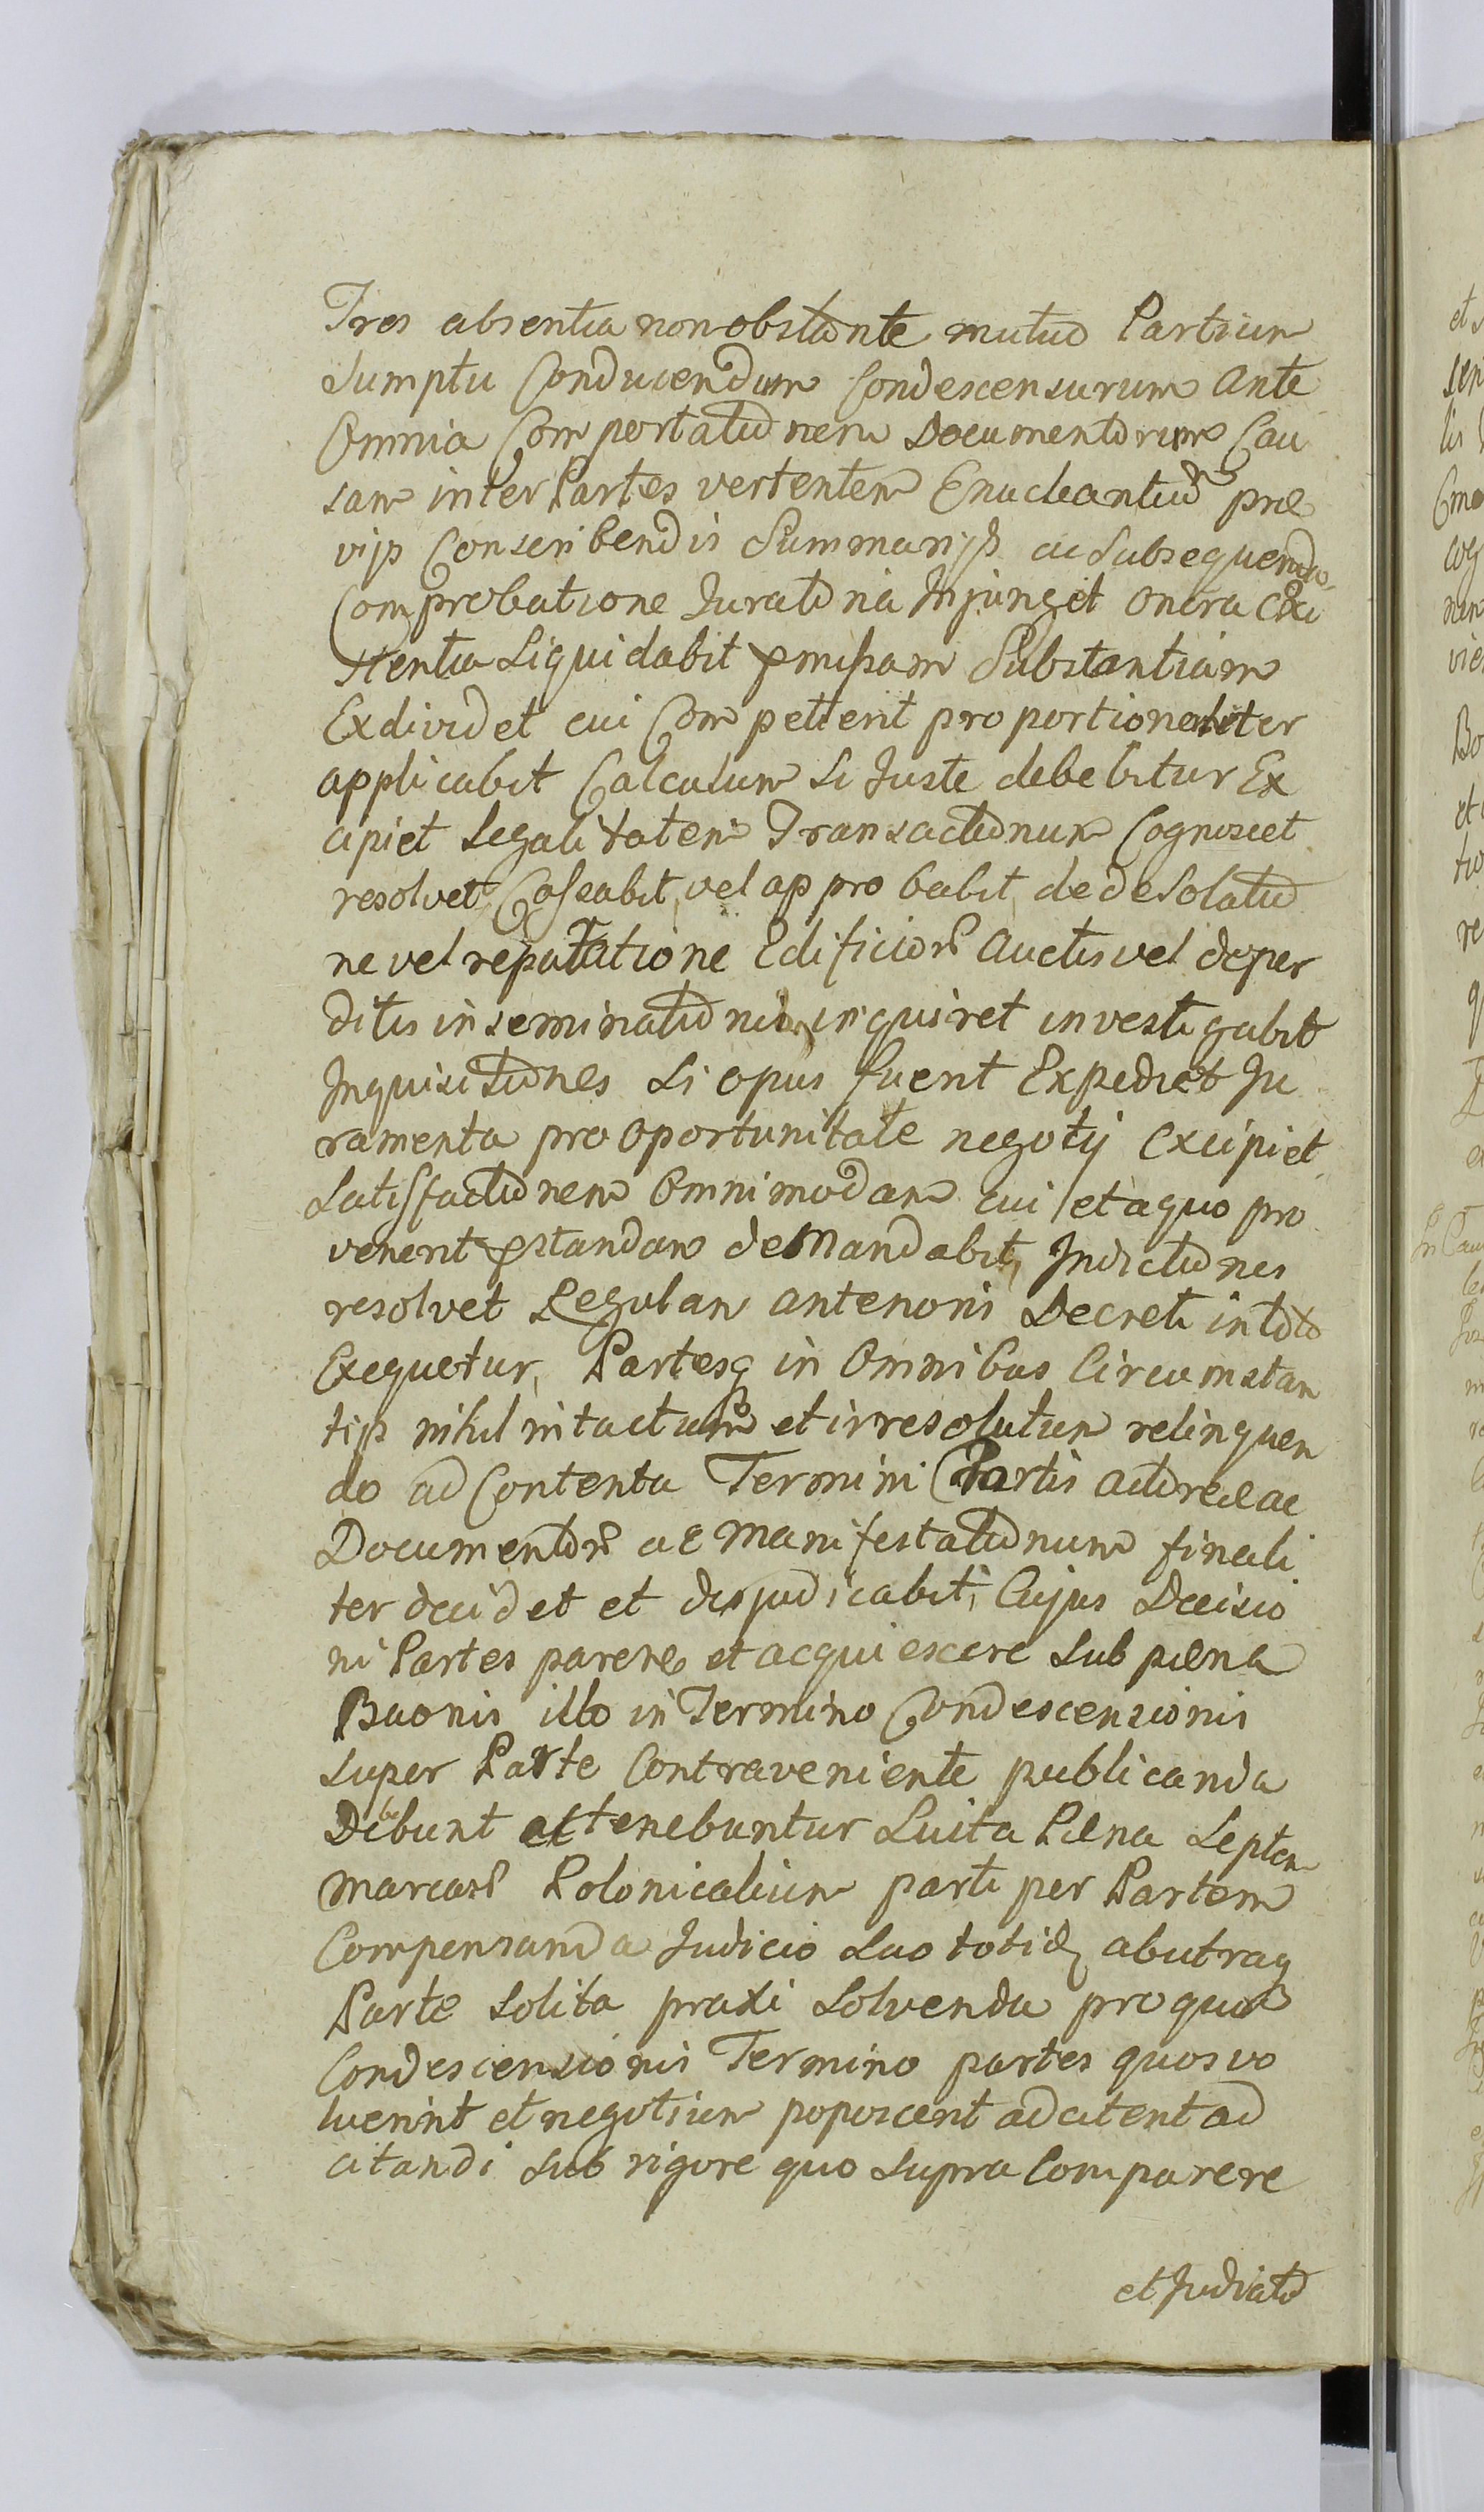 Tres absentia non obstante mutuo Partium
Sumptu Conducendum Condescensurum Ante
Omnia Comportationem Documentorum Cau
sam inter Partes vertentem Enucleantiũ præ
vijs Conscribendis Summarijs ac Subsequenda
Comprobatione Juratoria Injunget Onera Exi
stentia Liquidabit pmissam Substantiam
Exdividet cui Competterit proportionaliter
applicabit Calculum si Juste debebitur Ex
cipiet Legalitatem Transactionum Cognoscet
resolvet, Cassabit, vel approbabit, de desolatio
ne vel reputatione Edificior. Auctis vel deper
ditis inseminationib, inquiret investigabit
Inquisitiones si opus fuerit Expediet Ju
ramenta pro Oportunitate negotij Excipiet
Satisfactionem Omnimodam cui et a quo pro
venerit pstandam deMandabit, Indictiones
resolvet Regulam anterioris Decreti in toto
Exequetur, Partesq in Omnibus Circumstan
tijs nihil intactum et irresolutum relinquen
do ad Contenta Termini Partis actoreæ ac
Documentor. ac Manifestationum finali
ter decidet et disjudicabit, Cujus Decisio
ni Partes parere et acquiescere sub pæna
Baonis illo in Termino Condescensionis
super Parte Contraveniente publicanda
Debunt et tenebuntur Luita Pæna Septem
Marcar. Polonicalium parti per Partem
Compensanda Judicio suo totid ab utraq
Parte solita praxi solvenda pro quo
Condescensionis Termino partes quos vo
luerint et negotium poposcerit adcitent ad
citandi sub rigore quo supra Comparere
et Judicato